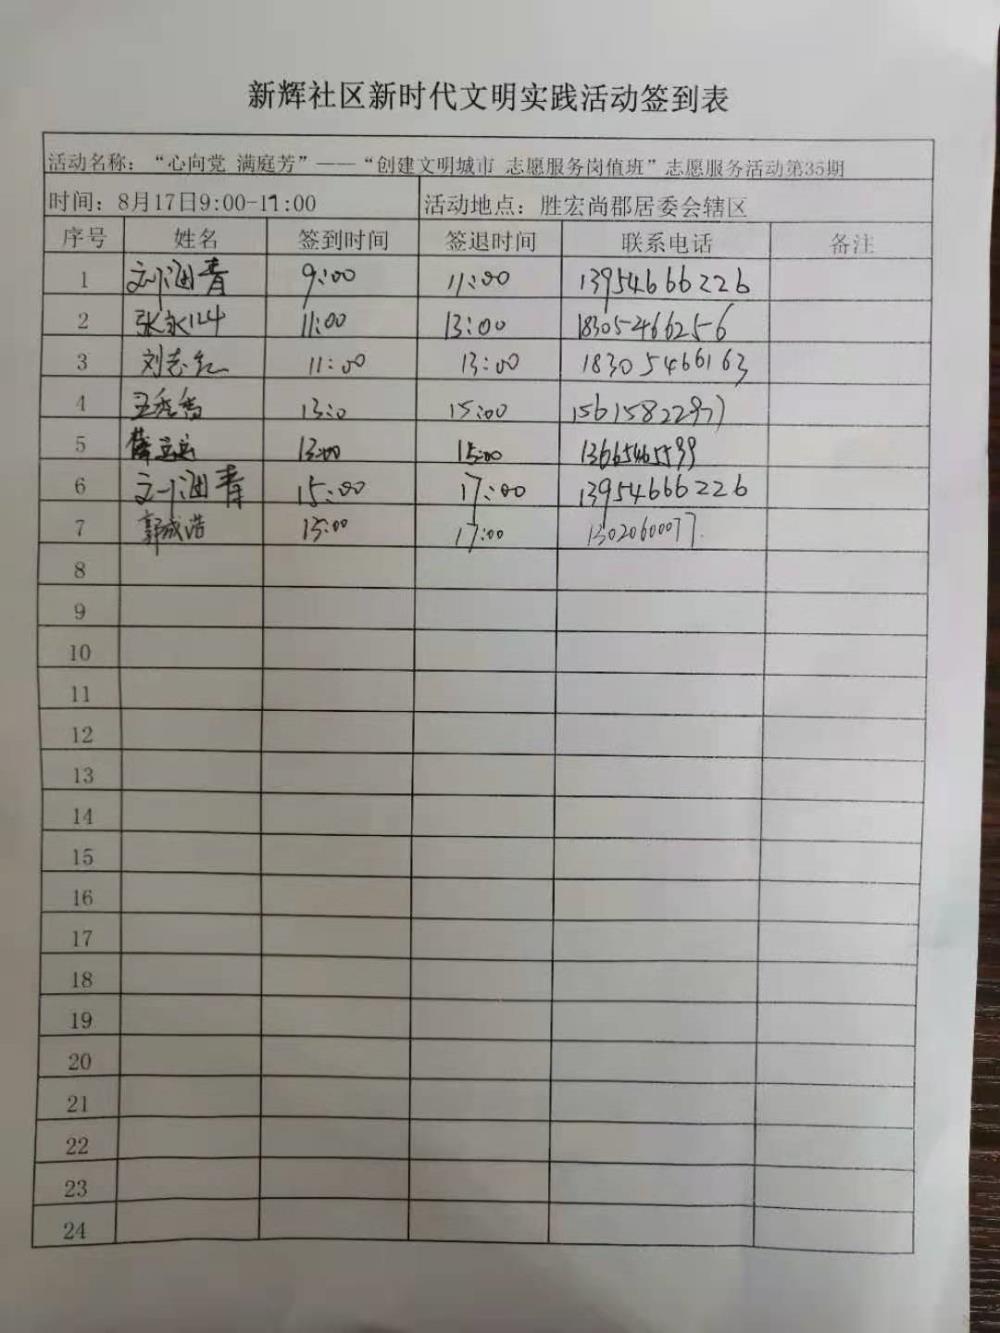 新辉社区新时代文明实践活动签到表
活动名称：“心向党 满庭芳”——“创建文明城市 志愿服务岗值班”志愿服务活动第35期
时间：8月17日9:00-17:00 活动地点：胜宏尚郡居委会辖区
序号 姓名 签到时间 签退时间 联系电话 备注
1 刘涵青 9:00 11:00 13954666226
2 11:00 13:00 18305466256
3 刘志红 11:00 13:00 18305466163
4 王秀香 13:0 15:00 15615822977
5 13:00 15:00 13665465599
6 刘涵青 15:00 17:00 13954666226
7 郭成浩 15:00 17:00 1302060077
8
9
10
11
12
13
14
15
16
17
18
19
20
21
22
23
24